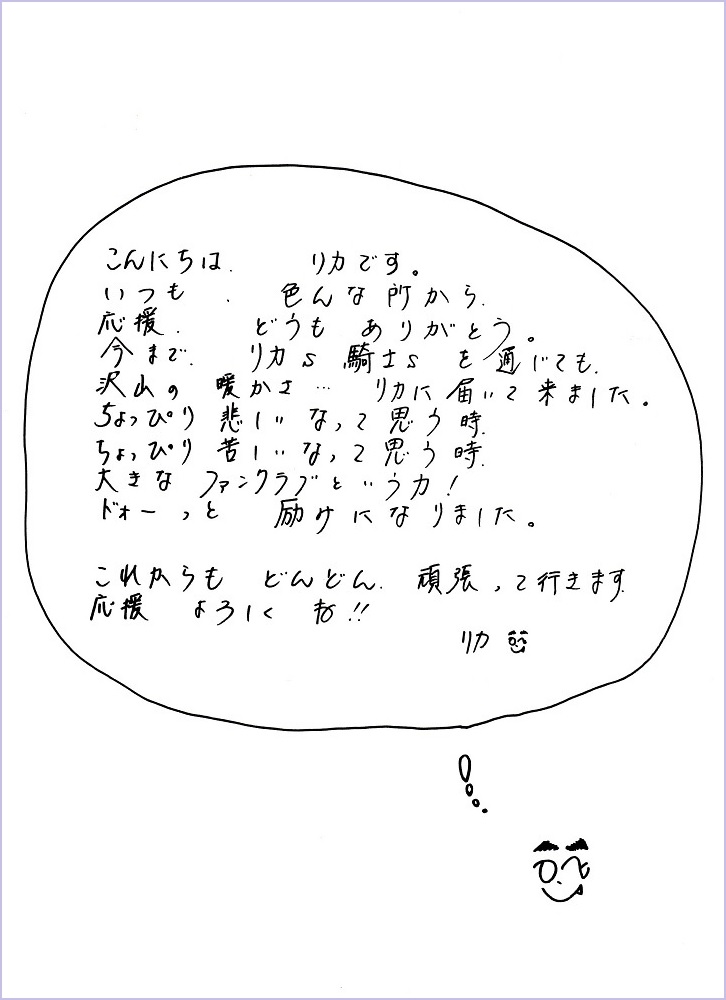 こんにちは. リカです。
いつも . 色んな所から.
応援. どうも ありがとう。
今まで. リカs 騎士s を 通じても.
沢山の 暖かさ… リカに届いて来ました。
ちょっぴり 悲しいなって思う時.
ちょっぴり 苦しいなって思う時.
大きな ファンクラブという力!
ドォーっと 励けになりました。
これからも どんどん. 頑張って行きます.
応援 よろしくね!!
リカ